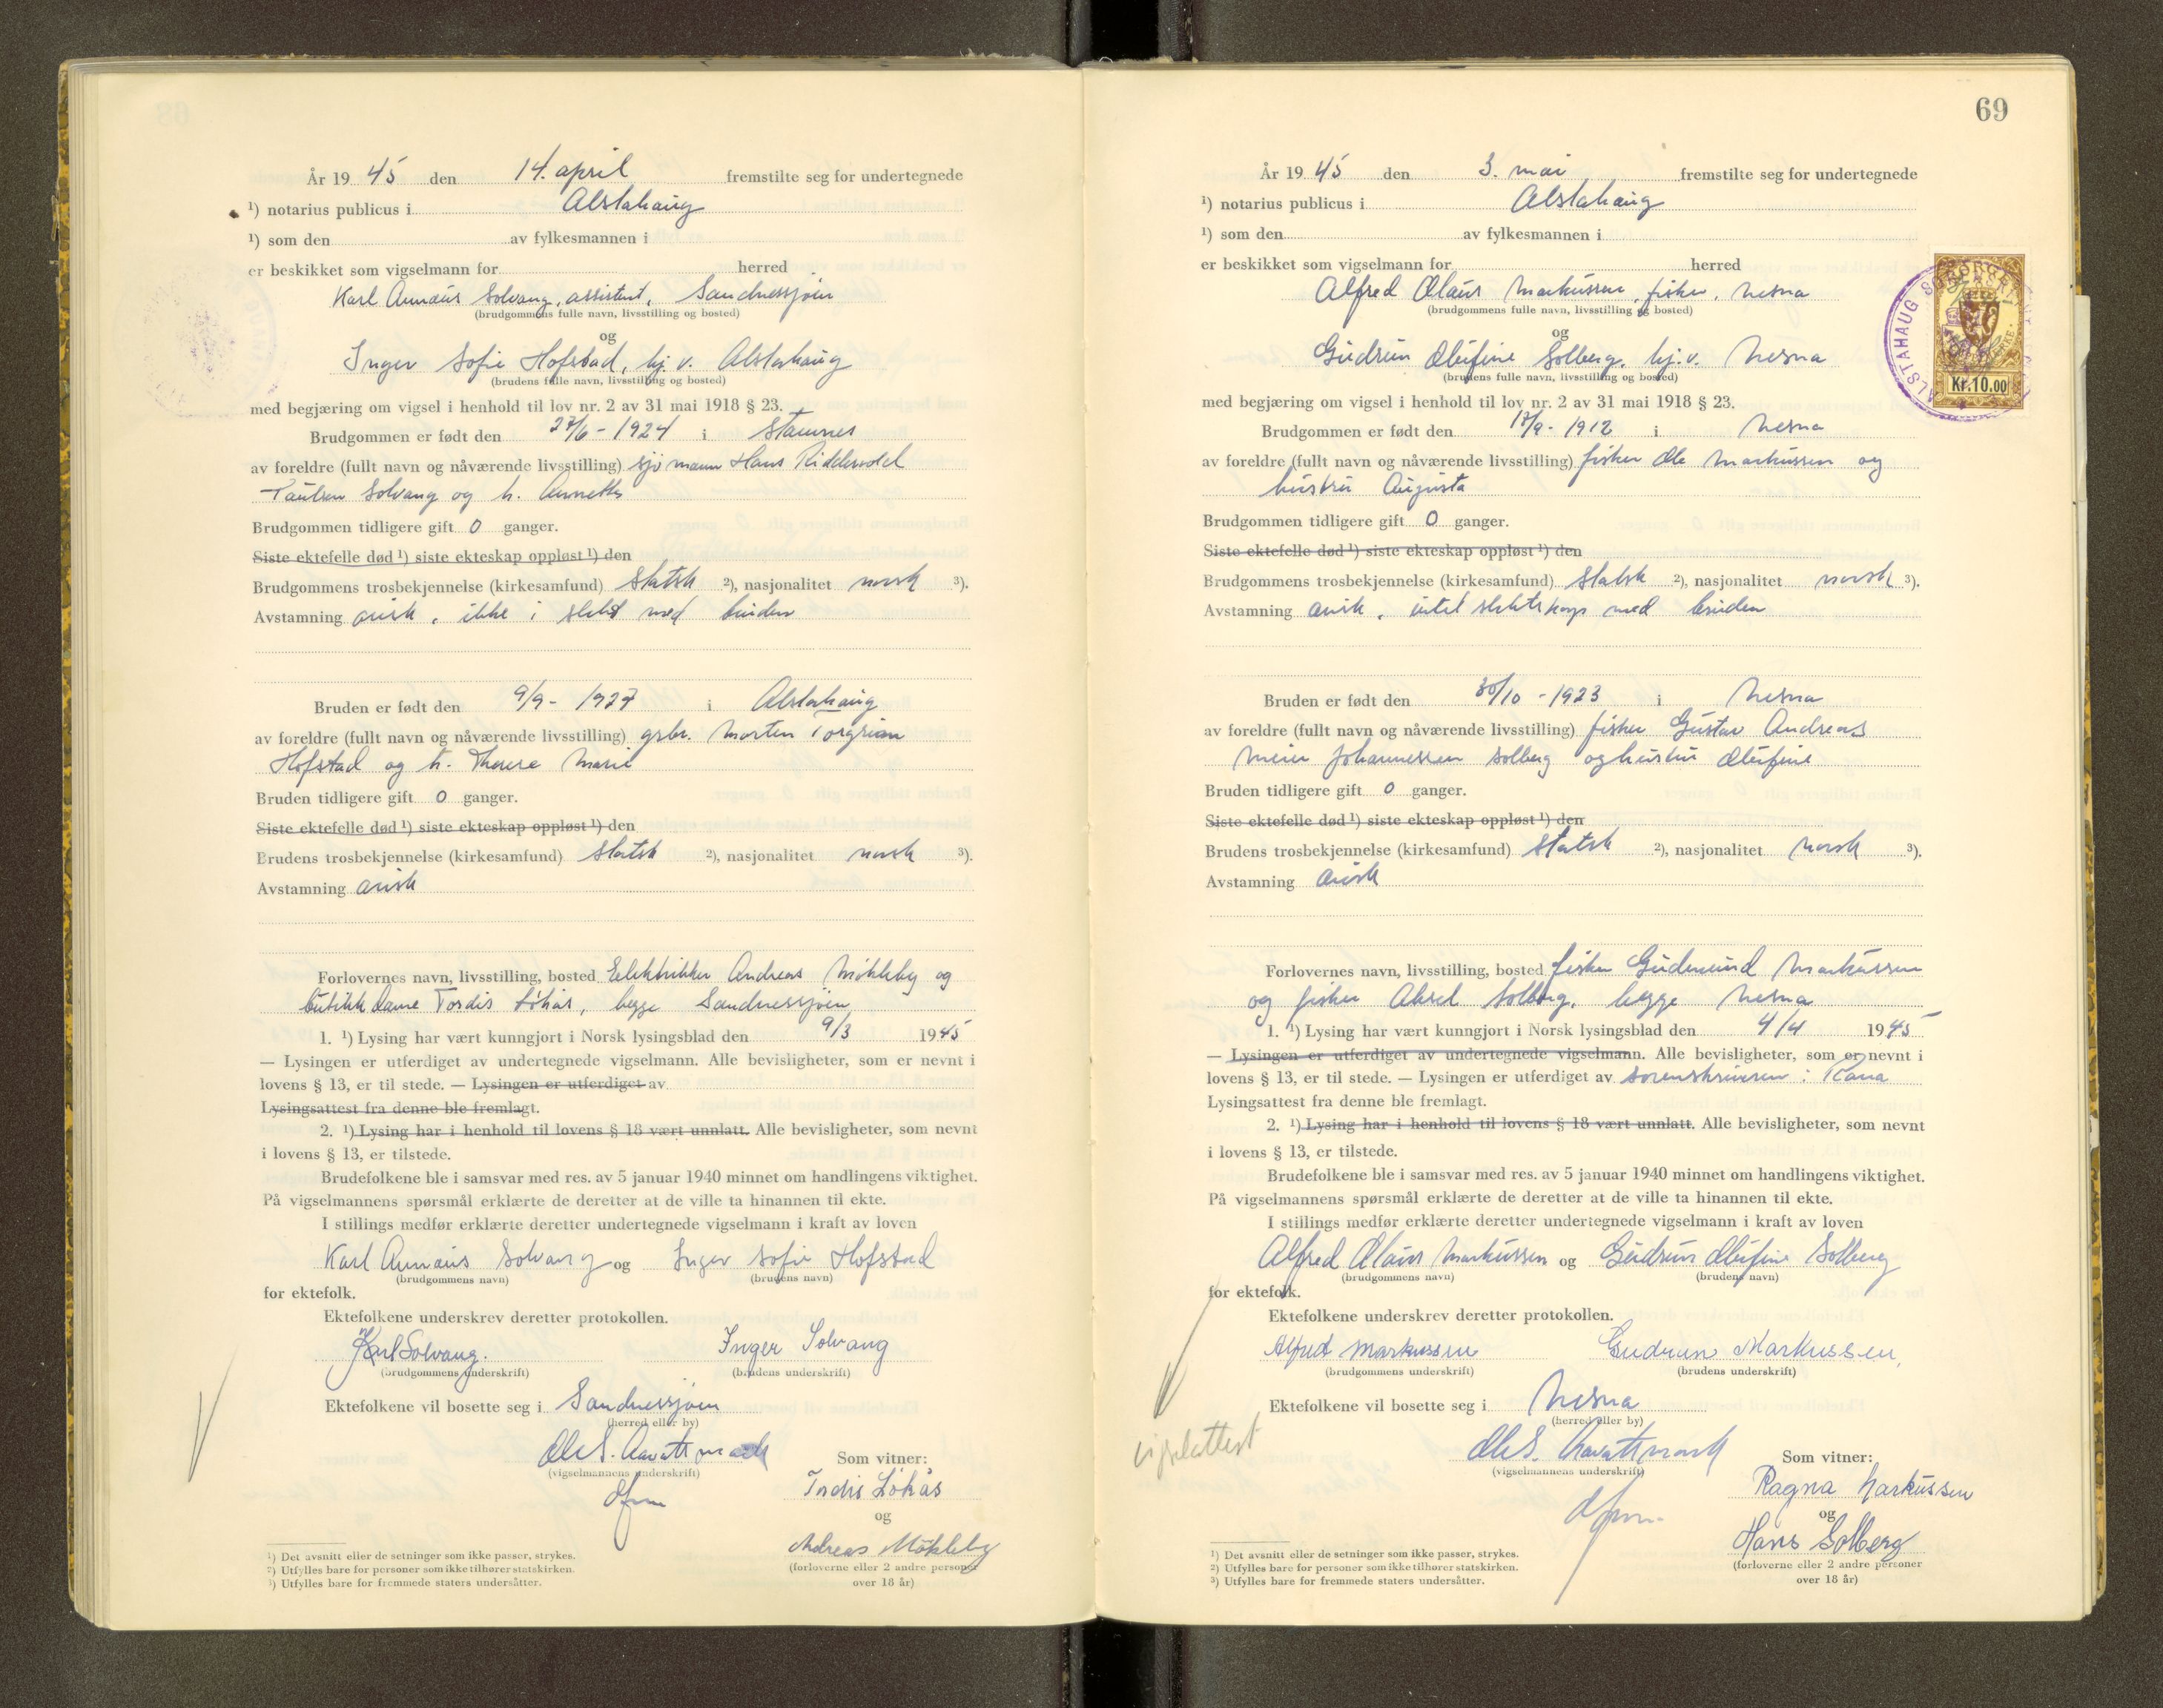 År 19 45 den 14. april fremstilte seg for undertegnede
¹) notarius publicus i Alstahaug
¹) som den av fylkesmannen i
er beskikket som vigselmann for herred
Karl Annæus Solvang, assistent, Sandnessjøen
(brudgommens fulle navn, livsstilling og bosted)
og
Inger Sofie Hofstad, hj. v. Alstahaug
(brudens fulle navn, livsstilling og bosted)
med begjæring om vigsel i henhold til lov nr. 2 av 31 mai 1918 § 23.
Brudgommen er født den 27/6 - 1924 i Stamnes
av foreldre (fullt navn og nåværende livsstilling) sjømann Hans Riddervold
Paulsen Solvang og h. Annette
Brudgommen tidligere gift 0 ganger.
Siste ektefelle død ¹) siste ekteskap oppløst ¹) den
Brudgommens trosbekjennelse (kirkesamfund) Statsk ²), nasjonalitet norsk ³).
Avstamning arisk, ikke i slekt med bruden
Bruden er født den 9/9 - 1927 i Alstahaug
av foreldre (fullt navn og nåværende livsstilling) grbr. Morten Torgrim
Hofstad og h. Therese Marie
Bruden tidligere gift 0 ganger.
Siste ektefelle død ¹) siste ekteskap oppløst ¹) den
Brudens trosbekjennelse (kirkesamfund) Statsk ²), nasjonalitet norsk ³).
Avstamning arisk
Forlovernes navn, livsstilling, bosted Elektriker Andreas Møkleby og
butikkdame Tordis Løkås, begge Sandnessjøen
1. ¹) Lysing har vært kunngjort i Norsk lysingsblad den 9/3 1945
— Lysingen er utferdiget av undertegnede vigselmann. Alle bevisligheter, som er nevnt i
lovens § 13, er til stede. — Lysingen er utferdiget av
Lysingsattest fra denne ble fremlagt.
2. ¹) Lysing har i henhold til lovens § 18 vært unnlatt. Alle bevisligheter, som nevnt
i lovens § 13, er tilstede.
Brudefolkene ble i samsvar med res. av 5 januar 1940 minnet om handlingens viktighet.
På vigselmannens spørsmål erklærte de deretter at de ville ta hinannen til ekte.
I stillings medfør erklærte deretter undertegnede vigselmann i kraft av loven
Karl Annæus Solvang og Inger Sofie Hofstad
(brudgommens navn) (brudens navn)
for ektefolk.
Ektefolkene underskrev deretter protokollen.
Karl Solvang. Inger Solvang
(brudgommens underskrift) (brudens underskrift)
Ektefolkene vil bosette seg i Sandnessjøen
(herred eller by)
Ole S. Aavatsmark
(vigselmannens underskrift)
dfm
Som vitner:
Tordis Løkås
og
Andreas Møkleby
(forloverne eller 2 andre personer
over 18 år)
¹) Det avsnitt eller de setninger som ikke passer, strykes.
²) Utfylles bare for personer som ikke tilhører statskirken.
³) Utfylles bare for fremmede staters undersåtter.
69
År 19 45 den 3. mai fremstilte seg for undertegnede
¹) notarius publicus i Alstahaug
¹) som den av fylkesmannen i
er beskikket som vigselmann for herred
Alfred Olaus Markussen, fisker, Nesna
(brudgommens fulle navn, livsstilling og bosted)
og
Gudrun Olufine Solberg, hj.v. Nesna
(brudens fulle navn, livsstilling og bosted)
ALSTAHAUG
Kr.10.00
med begjæring om vigsel i henhold til lov nr. 2 av 31 mai 1918 § 23.
Brudgommen er født den 17/9 - 1912 i Nesna
av foreldre (fullt navn og nåværende livsstilling) fisker Ole Markussen og
hustru Augusta
Brudgommen tidligere gift 0 ganger.
Siste ektefelle død ¹) siste ekteskap oppløst ¹) den
Brudgommens trosbekjennelse (kirkesamfund) Statsk ²), nasjonalitet norsk ³).
Avstamning arisk, intet slektskap med bruden
Bruden er født den 30/10 - 1923 i Nesna
av foreldre (fullt navn og nåværende livsstilling) fisker Gustav Andreas
Meier Johannessen Solberg og hustru Olufine
Bruden tidligere gift 0 ganger.
Siste ektefelle død ¹) siste ekteskap oppløst ¹) den
Brudens trosbekjennelse (kirkesamfund) Statsk ²), nasjonalitet norsk ³).
Avstamning arisk
Forlovernes navn, livsstilling, bosted fisker Gudmund Markussen
og fisker Aksel Solberg, begge Nesna
1. ¹) Lysing har vært kunngjort i Norsk lysingsblad den 4/4 1945
— Lysingen er utferdiget av undertegnede vigselmann. Alle bevisligheter, som er nevnt i
lovens § 13, er til stede. — Lysingen er utferdiget av sorenskriveren i Rana
Lysingsattest fra denne ble fremlagt.
2. ¹) Lysing har i henhold til lovens § 18 vært unnlatt. Alle bevisligheter, som nevnt
i lovens § 13, er tilstede.
Brudefolkene ble i samsvar med res. av 5 januar 1940 minnet om handlingens viktighet.
På vigselmannens spørsmål erklærte de deretter at de ville ta hinannen til ekte.
I stillings medfør erklærte deretter undertegnede vigselmann i kraft av loven
Alfred Olaus Markussen og Gudrun Olufine Solberg
(brudgommens navn) (brudens navn)
for ektefolk.
Ektefolkene underskrev deretter protokollen.
Alfred Markussen Gudrun Markussen,
(brudgommens underskrift) (brudens underskrift)
Ektefolkene vil bosette seg i Nesna
(herred eller by)
vigselattest
Ole S. Aavatsmark
(vigselmannens underskrift)
dfm.
Som vitner:
Ragna Markussen
og
Hans Solberg
(forloverne eller 2 andre personer
over 18 år)
¹) Det avsnitt eller de setninger som ikke passer, strykes.
²) Utfylles bare for personer som ikke tilhører statskirken.
³) Utfylles bare for fremmede staters undersåtter.